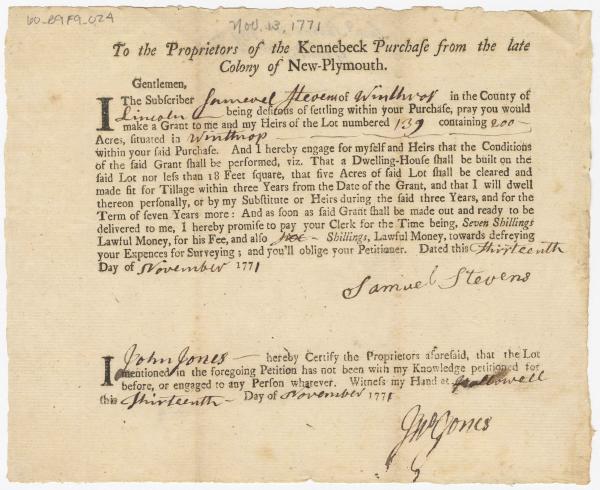 60_B9F9_024
Nov. 13, 1771
To the Proprietors of the Kennebeck Purchase from the late
Colony of New-Plymouth.
Gentlemen,
I The Subscriber Samevel Stevens of Winthrop in the County of
Lincoln being desirous of settling within your Purchase, pray you would
make a Grant to me and my Heirs of the Lot numbered 139 containing 200
Acres, situated in Winthrop
within your said Purchase. And I hereby engage for myself and Heirs that the Conditions
of the said Grant shall be performed, viz. That a Dwelling-House shall be built on the
said Lot not less than 18 Feet square, that five Acres of said Lot shall be cleared and
made fit for Tillage within three Years from the Date of the Grant, and that I will dwell
thereon personally, or by my Substitute or Heirs during the said three Years, and for the
Term of seven Years more: And as soon as said Grant shall be made out and ready to be
delivered to me, I hereby promise to pay your Clerk for the Time being, Seven Shillings
Lawful Money, for his Fee, and also Shillings, Lawful Money, towards defreying
your Expences for Surveying; and you'll oblige your Petitioner. Dated this Thirteenth
Day of November 1771
Samuel Stevens
I John Jones hereby Certify the Proprietors aforesaid, that the Lot
mentioned in the foregoing Petition has not been with my Knowledge petitioned for
before, or engaged to any Person whatever. Witness my Hand at Hallowell
this Thirteenth Day of November 1771
Jno Jones